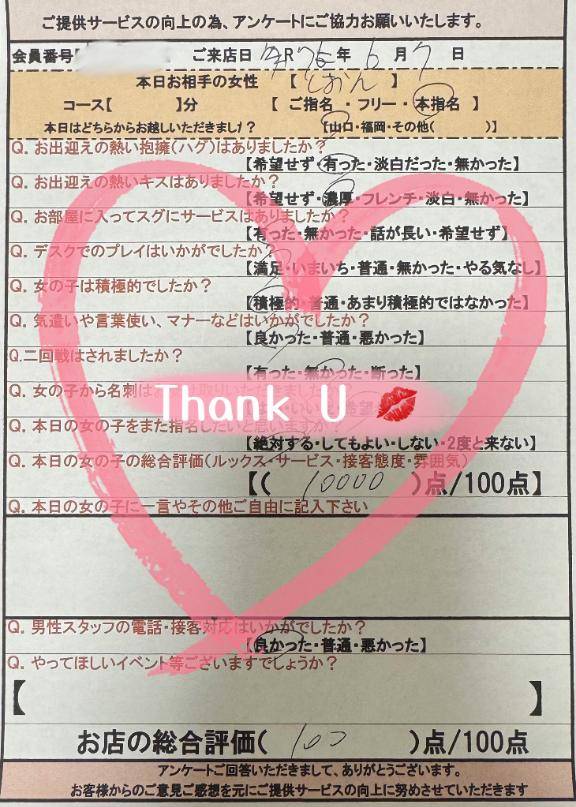 ご提供サービスの向上の為、アンケートにご協力お願いいたします。
会員番号【 ご来店日 年 6 月 7 日
本日お相手の女性 【 しおん 】
コース【 】分 【 ご指名 ・ フリー ・ 本指名 】
本日はどちらからお越しいただきました? 【山口・福岡・その他( )】
Q. お出迎えの熱い抱擁(ハグ)はありましたか?
【希望せず・有った・淡白だった・無かった】
Q. お出迎えの熱いキスはありましたか?
【希望せず・濃厚・フレンチ・淡白・無かった】
Q. お部屋に入ってスグにサービスはありましたか?
【有った・無かった・話が長い・希望せず】
Q. デスクでのプレイはいかがでしたか?
【満足・いまいち・普通・無かった・やる気なし】
Q. 女の子は積極的でしたか?
【積極的・普通・あまり積極的ではなかった】
Q. 気遣いや言葉使い、マナーなどはいかがでしたか?
【良かった・普通・悪かった】
Q.二回戦はされましたか?
【有った・無かった・断った】
Q. 女の子から名刺は
Thank U 💋
Q. 本日の女の子をまた指名したいと思いますか?
【絶対する・してもよい・しない・2度と来ない】
Q. 本日の女の子の総合評価(ルックス・サービス・接客態度・雰囲気)
【( 10000 )点/100点】
Q. 本日の女の子に一言やその他ご自由に記入下さい
Q. 男性スタッフの電話・接客対応はいかがでしたか?
【良かった・普通・悪かった】
Q. やってほしいイベント等ございますでしょうか?
【 】
お店の総合評価( 100 )点/100点
アンケートご回答いただきまして、ありがとうございます。
お客様からのご意見ご感想を元にご提供サービスの向上に努めさせていただきます